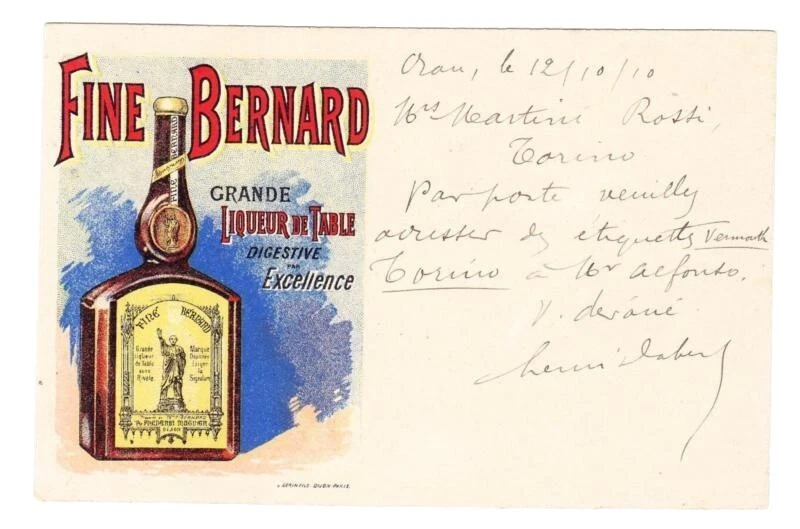 FINE BERNARD
GRANDE
LIQUEUR DE TABLE
DIGESTIVE
PAR
Excellence
FINE BERNARD
FINE BERNARD
Grande
Liqueur
de Table
sans
Rivale
Marque
Déposée
Exiger
la
Signature
DIJON
GERIN FILS DIJON-PARIS.
Oran, le 12/10/10
Mrs Martini Rossi,
Torino
Par poste veuillez
adresser des étiquettes Vermouth
Torino à Mr Alfonso.
V. dévoué